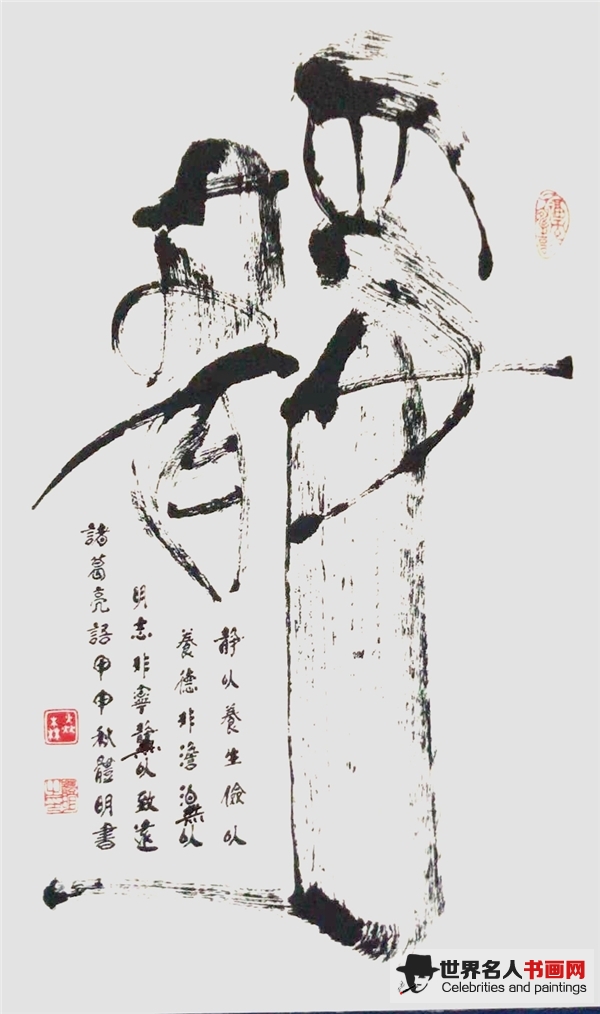 靜
靜以養生儉以
養德非澹泊無以
明志非寧靜無以致遠
諸葛亮語甲申秋體明書
世界名人书画网
Celebrities and paintings